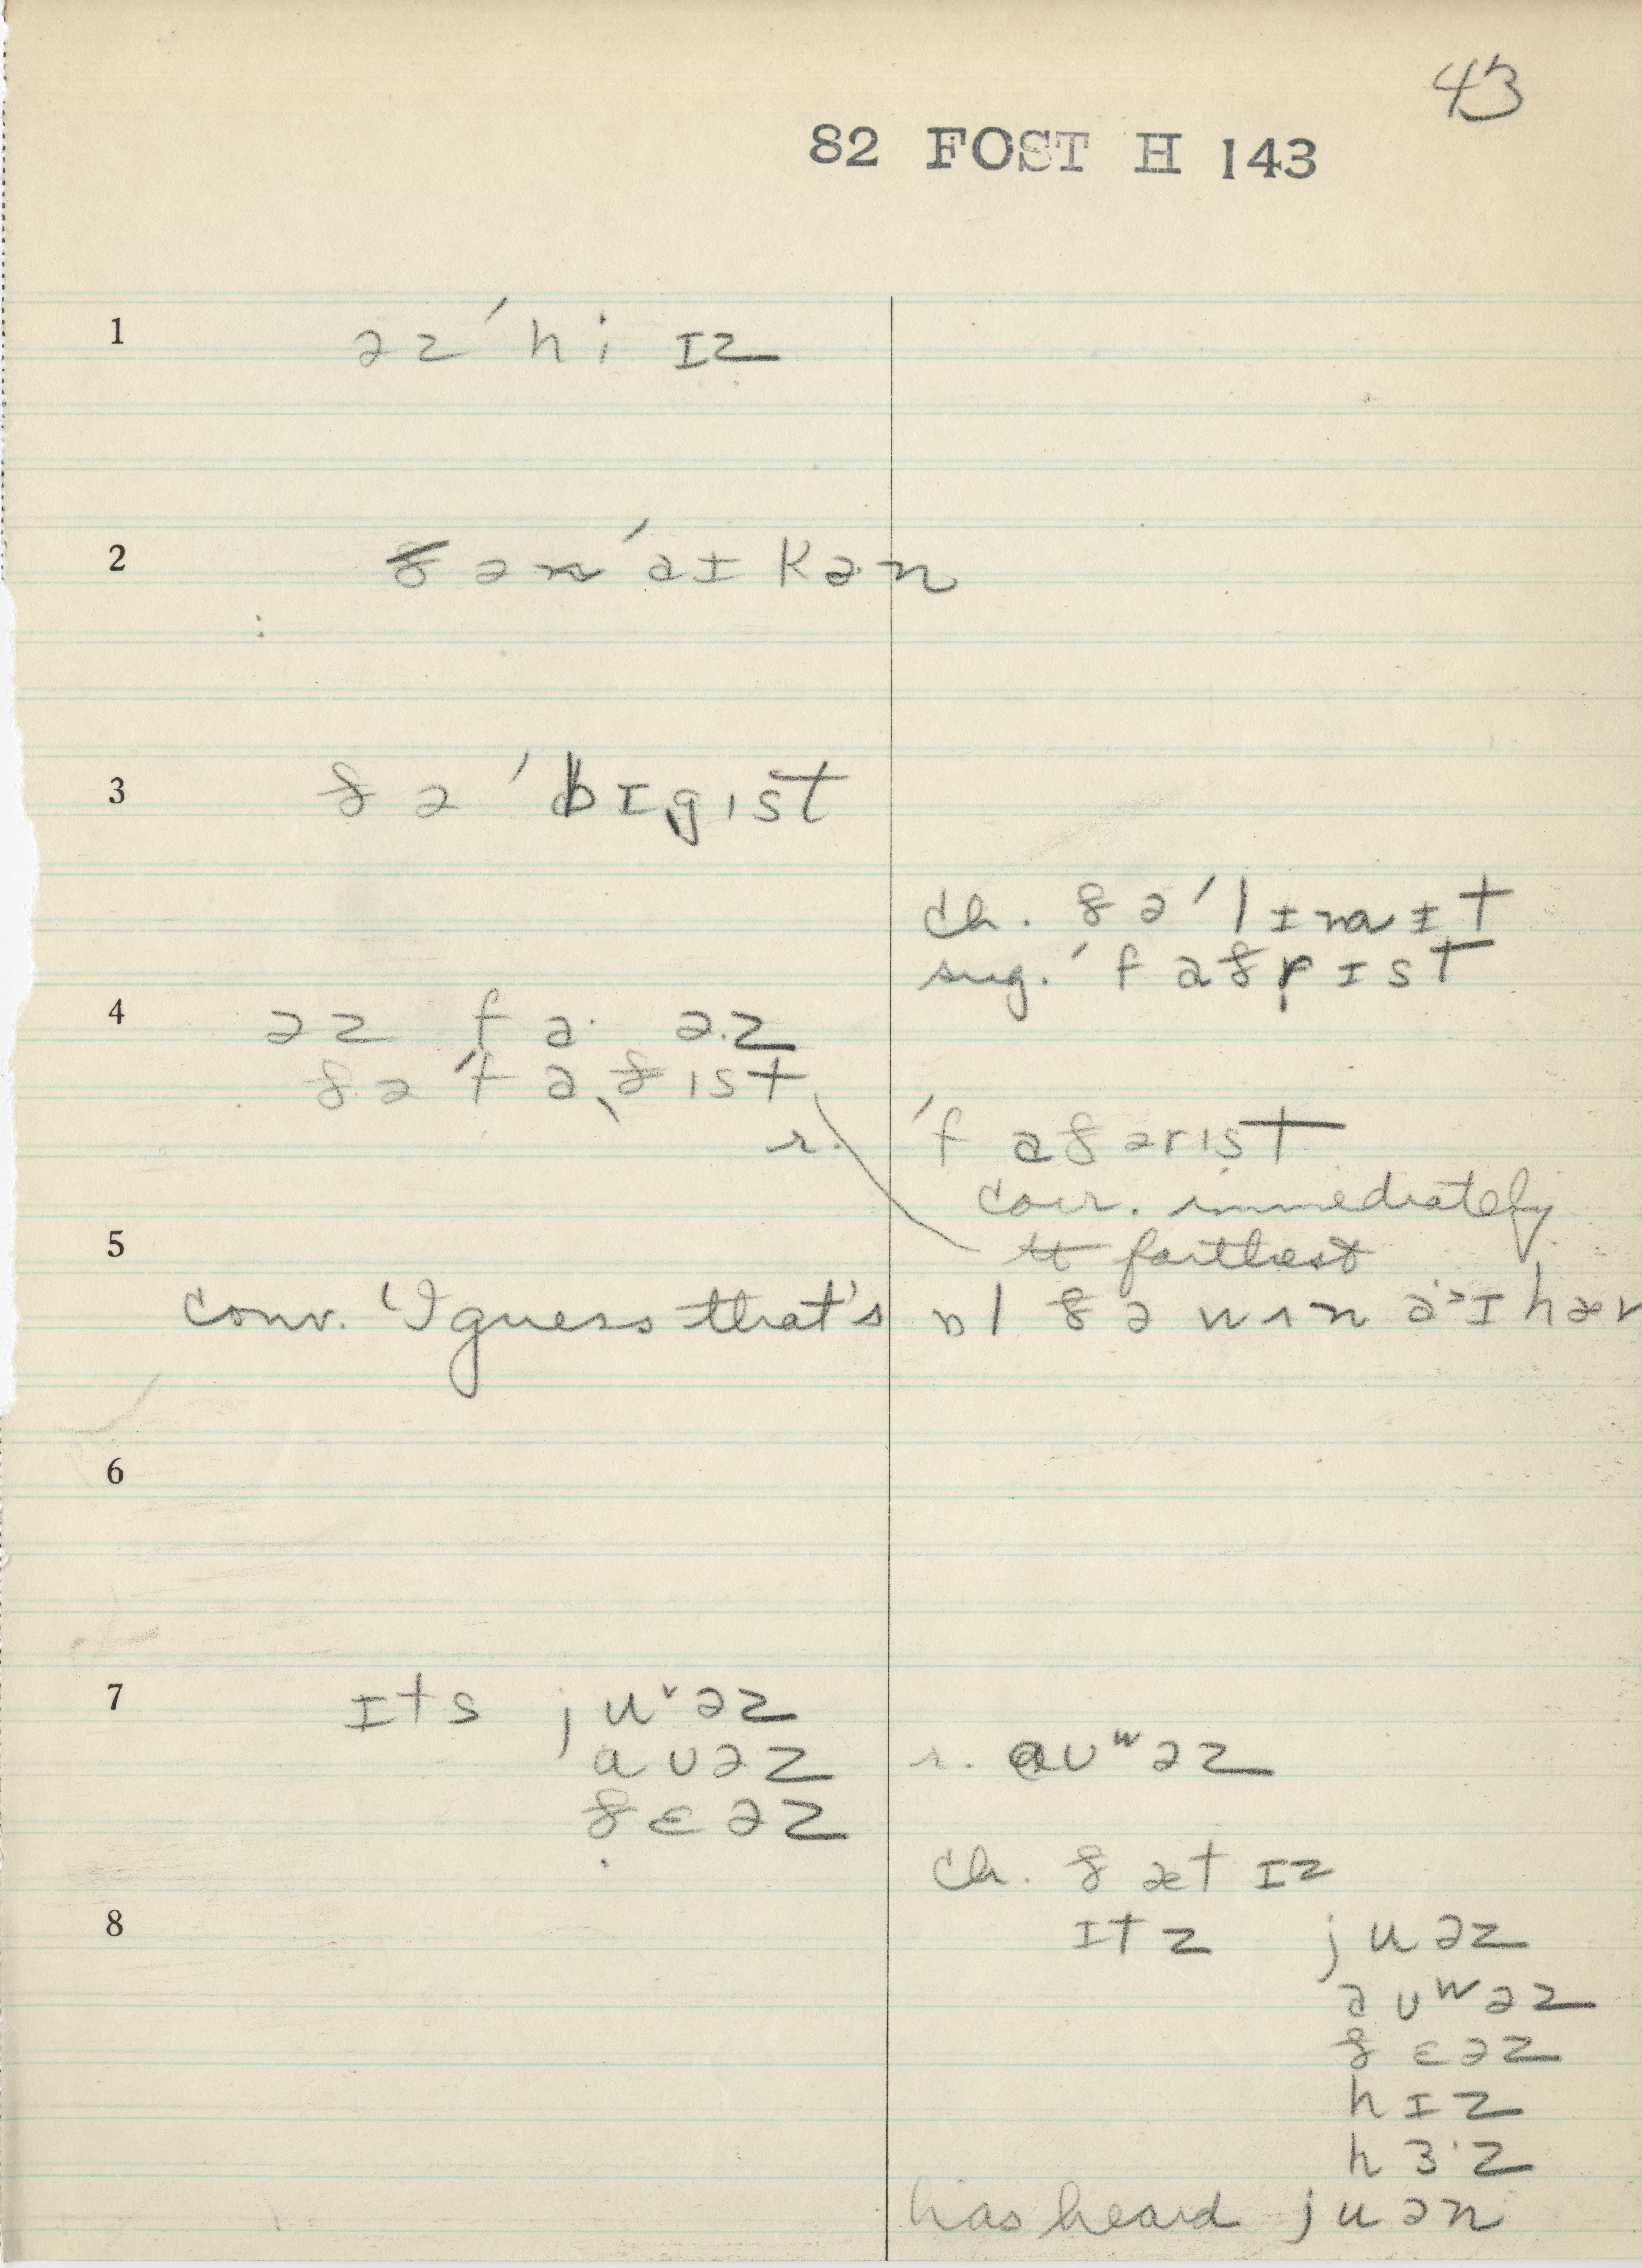 43
82 FOST H 143
1 əz ˈhi ɪz
2 ðən ˈaɪ kən
3 ðə ˈbɪgɪst
ch. ðə ˈlɪmɪt
sug. ˈfaðrɪst
4 əz fa· əz
ðə ˈfaðɪst
r. ˈfaðərɪst
corr. immediately
5 to farthest
conv. 'I guess that's ɒl ðə wʌn aˈ˃ɪ hæv
6
7 ɪts juᵛəz
aʊəz r. ɑʊʷəz
ðɛəz
ch. ðæt ɪz
8 ɪtz juəz
aʊʷəz
ðɛəz
hɪz
hɜ·z
has heard juən